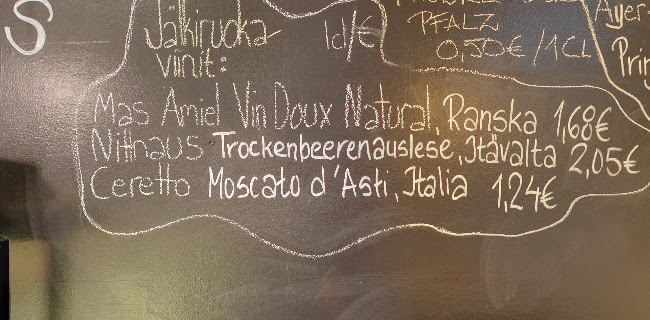 S
Jälkiruoka-
viinit:
1cl/€
PFALZ
0,50€/1CL
Mas Amiel Vin Doux Natural, Ranska 1,68€
Nittnaus Trockenbeerenauslese, Itävalta 2,05€
Ceretto Moscato d'Asti, Italia 1,24€